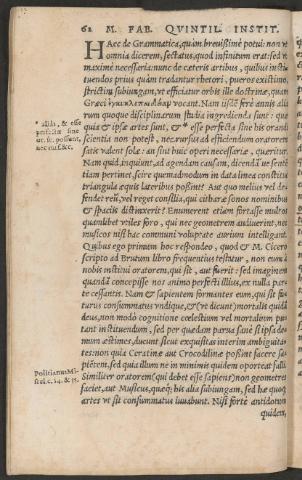 62 M. FAB. QVINTIL. INSTIT.
HAec de Grammatica, quàm breuissimè potui: non vt
omnia dicerem, sectatus, quod infinitum erat: sed vt
maximè necessaria: nunc de cæteris artibus, quibus insti
tuendos priùs quàm tradantur rhetori, pueros existimo,
strictim subiungam, vt efficiatur orbis ille doctrinæ, quam
Græci vocant. Nam iisdē ferè annis alia
rum quoque disciplinarum studia ingredienda sunt: quæ
quia & ipsæ artes sunt, & esse perfecta sine his orandi
scientia non potest, nec rursus ad efficiendum oratorem
satis valent solæ: an sint huic operi necessariæ, quæritur.
* aliàs, & esse
perfectæ sine
Nam quid, inquiunt, ad agendam causam, dicendā ve senté
tiam pertinet, scire quemadmodum in data linea constitui
triangula æquis lateribus possint? Aut quo meliùs vel de-
fendet reū, vel reget consilia, qui citharæ sonos nominibus
& spaciis distinxerit? Enumerent etiam fortasse multos
quamlibet vtiles foro, qui nec geometrem audiuerint, nec
musicos nisi hac communi voluptate aurium intelligant.
Quibus ego primùm hoc respondeo, quod & M. Cicero
scripto ad Brutum libro frequentiùs testatur, non eum à
nobis institui oratorem, qui sit, aut fuerit: sed imaginem
quandā concepisse nos animo perfecti illius, ex nulla par-
te cessantis. Nam & sapientem formantes eum, qui sit fu
turus consummatus vndique, & (vt dicunt) mortalis quidā
deus, non modò cognitione cœlestium vel mortalium pu-
tant instituendum, sed per quædam parua sanè si ipsa de-
mum æstimes, ducunt sicut exquisitas interim ambiguita-
tes: non quia Ceratinæ aut Crocodilinæ possint facere sa-
piētem, sed quia illum ne in minimis quidem oporteat falli.
Politianus Mi-
scel. c. 54. & 55.
Similiter oratorem (qui debet esse sapiens) non geometres
faciet, aut Musicus, quæq; his alia subiungam, sed hæ quoq;
artes vt sit consummatus iuuabunt. Nisi fortè antidotum
quidem,